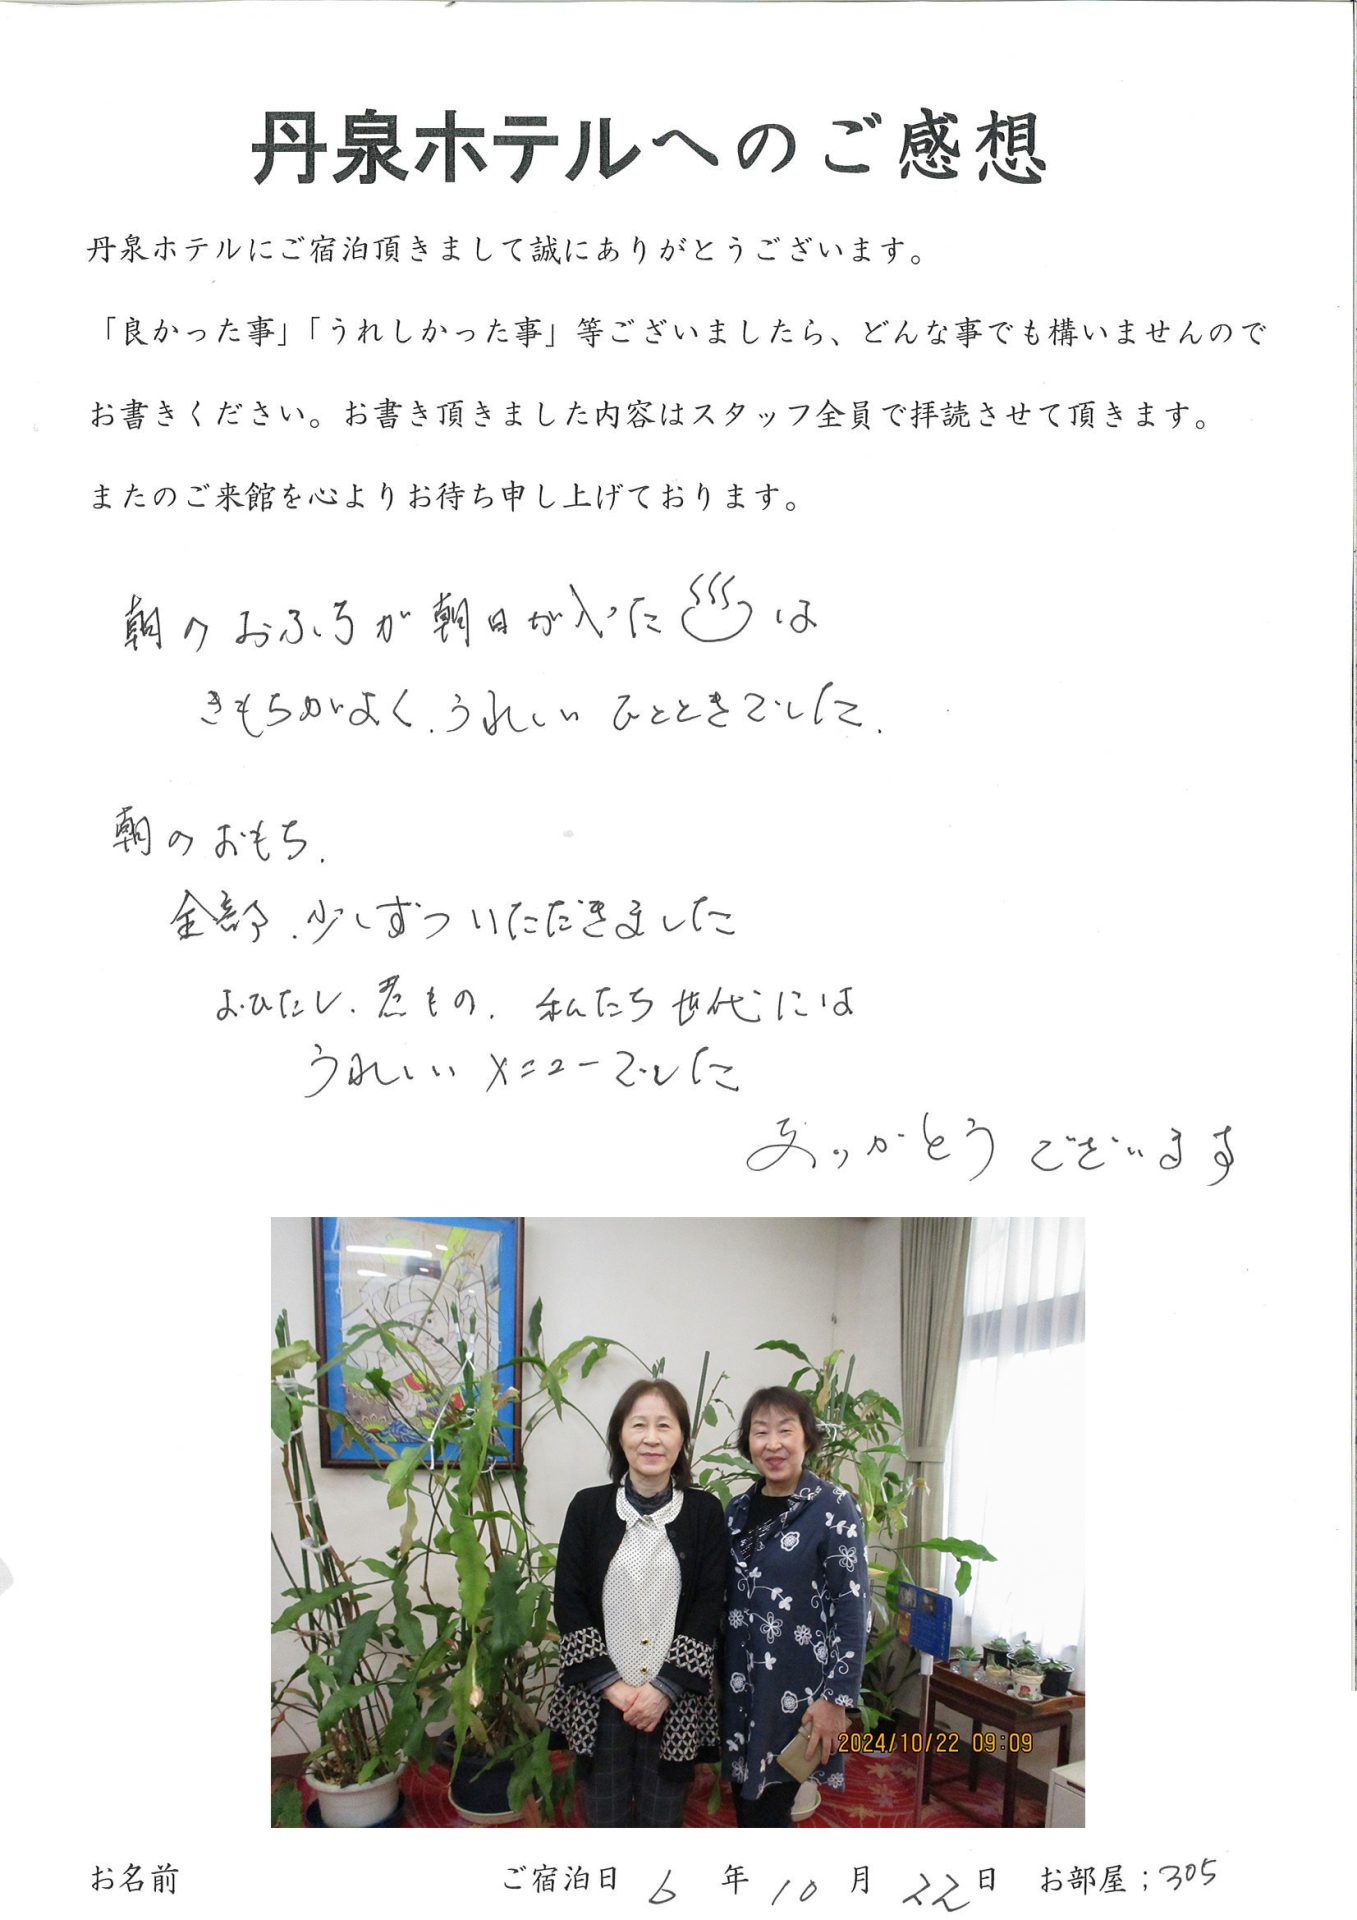 丹泉ホテルへのご感想
丹泉ホテルにご宿泊頂きまして誠にありがとうございます。
「良かった事」「うれしかった事」等ございましたら、どんな事でも構いませんので
お書きください。お書き頂きました内容はスタッフ全員で拝読させて頂きます。
またのご来館を心よりお待ち申し上げております。
朝のおふろが朝日が入った♨は
きもちがよく.うれしいひとときでした.
朝のおもち.
全部.少しずついただきました
おひたし.煮もの.私たち世代には
うれしいメニューでした
ありがとうございます
2024/10/22 09:09
お名前 ご宿泊日 6 年 10 月 22日 お部屋;305